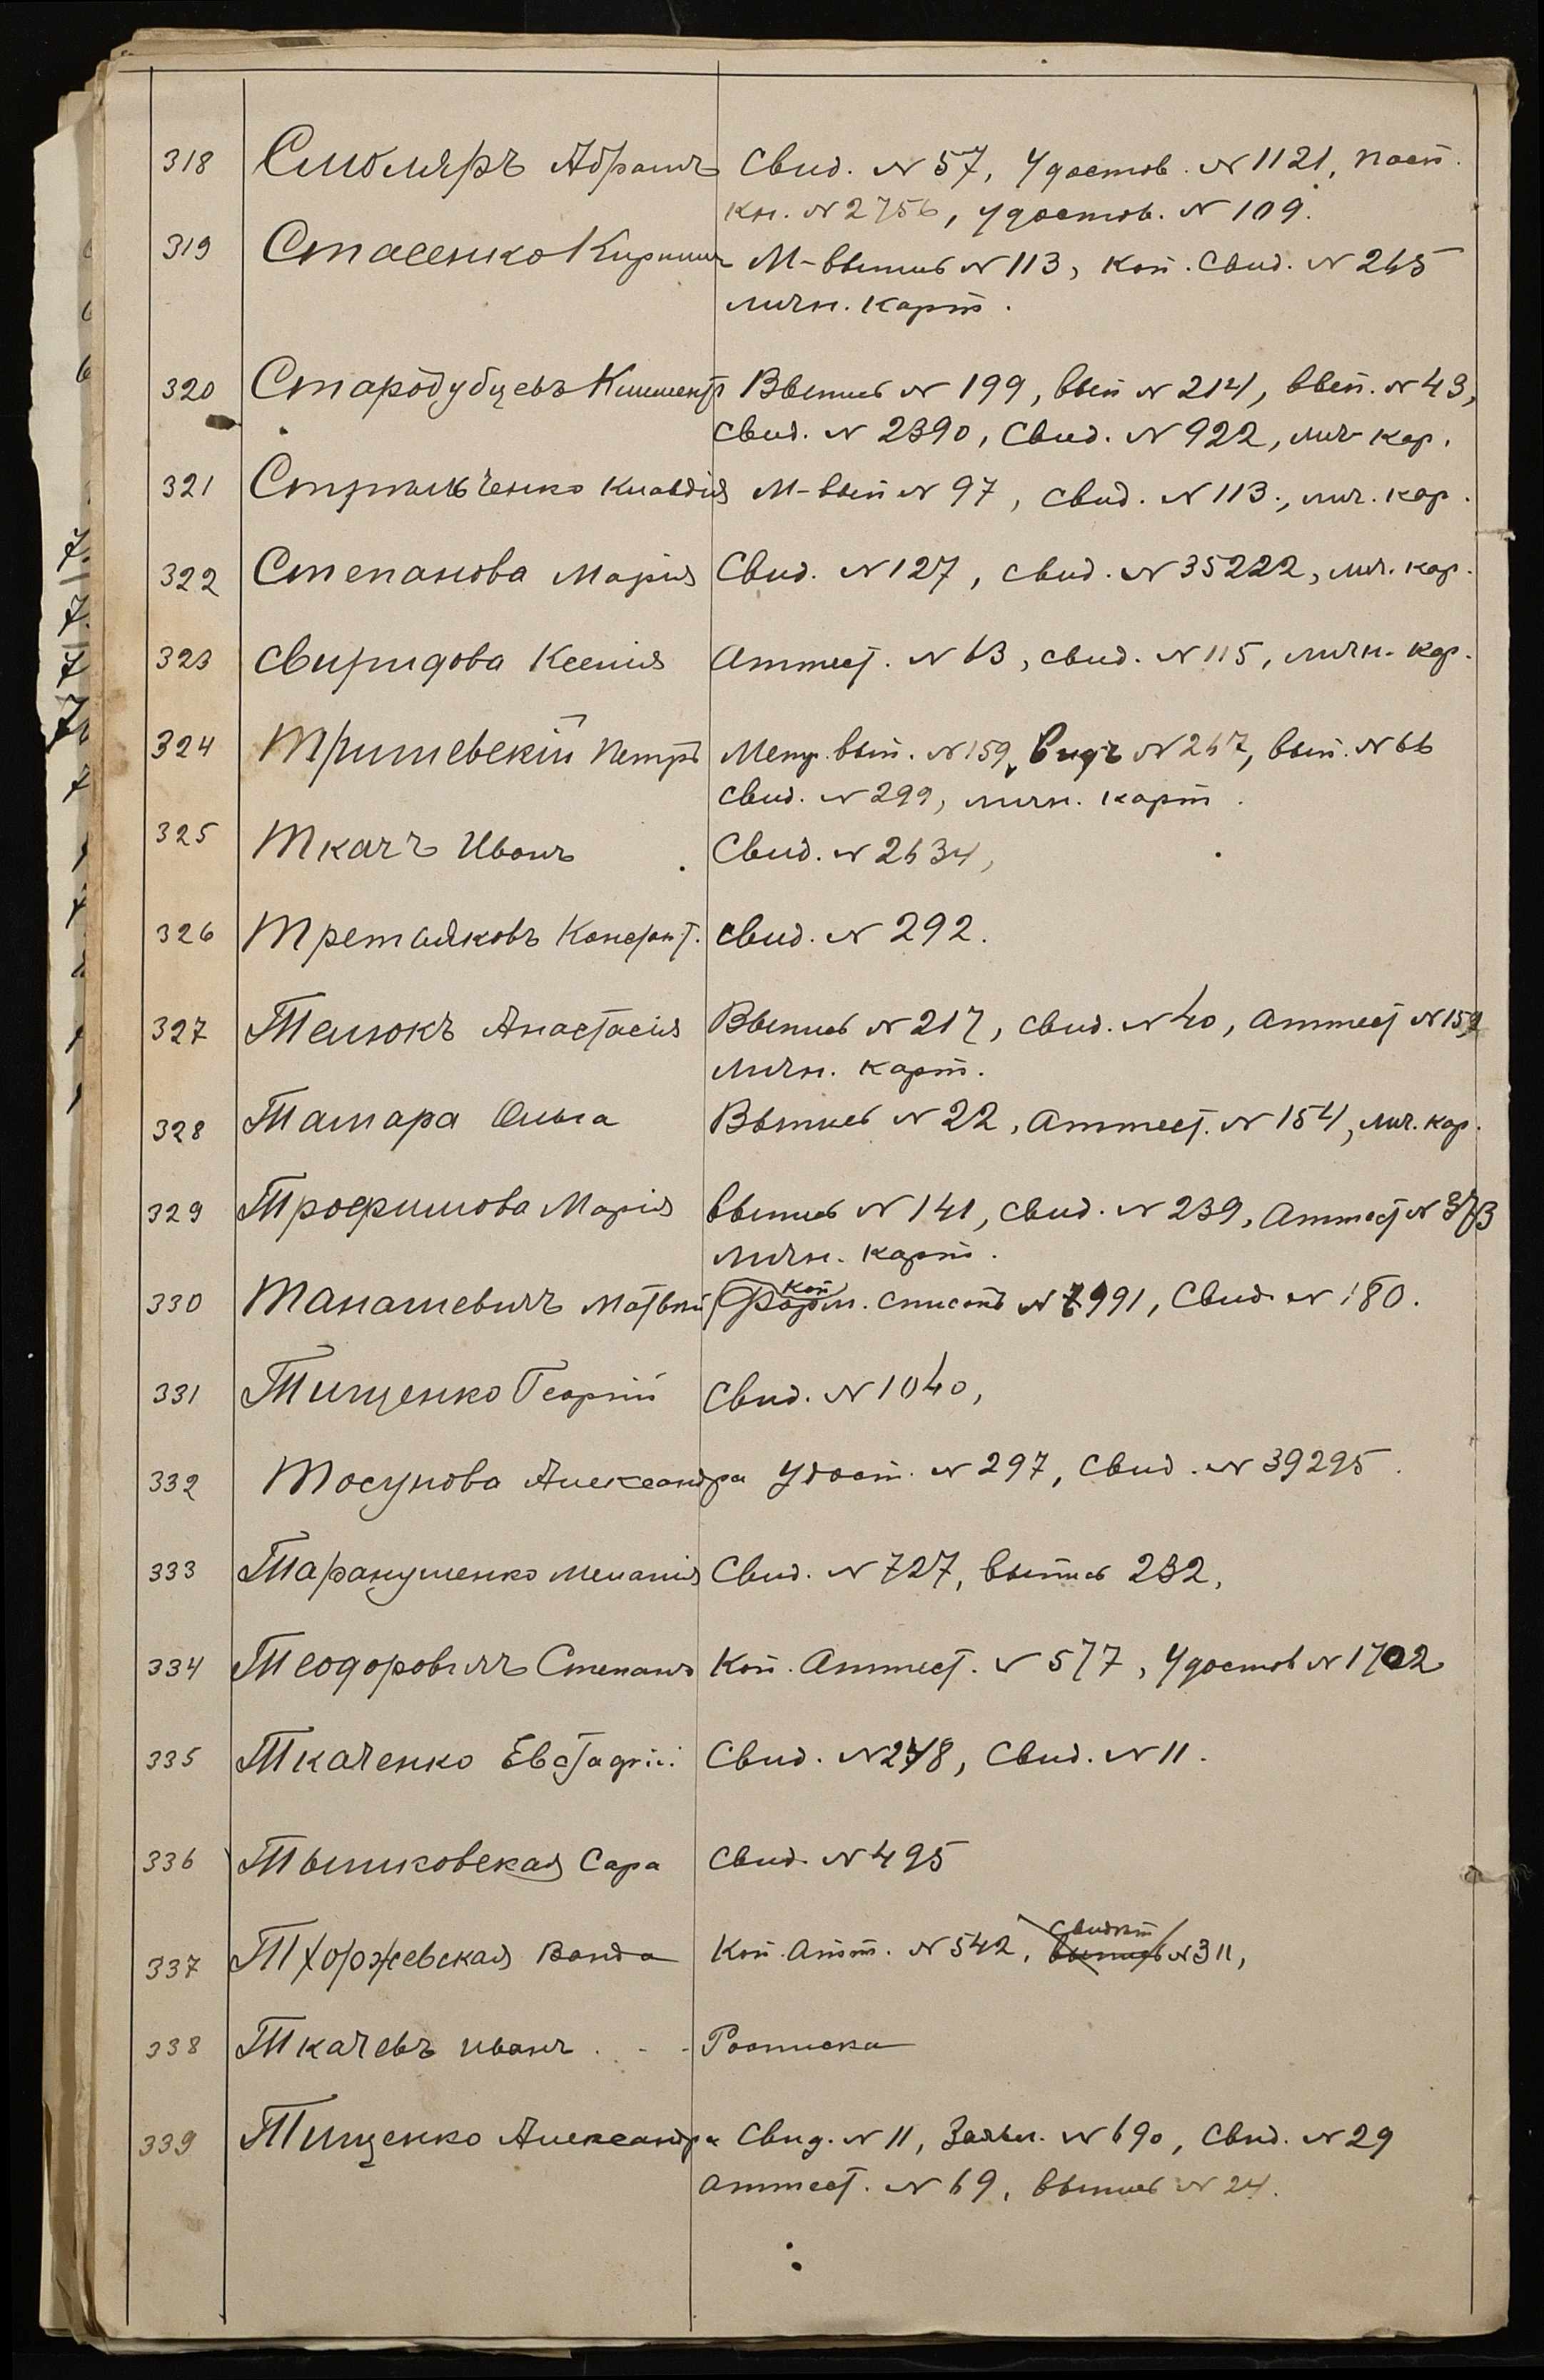 318 Смоляръ Абрамъ Свид. № 57, Удостов. № 1121, пасп.
кн. № 2756, удостов. № 109.
319 Стасенко Кириллъ М-выпись № 113, коп. свид. № 265
личн. карт.
320 Стародубцевъ Климент Выпись № 199, вып № 214, вып. № 43,
Свид. № 2390, Свид. № 922, лич- кар.
321 Стрѣльченко Клавдія М-вып № 97, свид. № 113., лич. кар.
322 Степанова Марія Свид. № 127, свид. № 35222, лич. кар.
323 Свиридова Ксенія Аттест. № 63, свид. № 115, личн. кар.
324 Тришевскій Петръ Метр. вып. № 159, Видъ № 267, вып. № 66
Свид. № 299, личн. карт.
325 Ткачъ Иванъ Свид. № 2634,
326 Третьяковъ Констант. Свид. № 292.
327 Телюкъ Анастасія Выпись № 217, свид. № 40, Аттест № 159
личн. карт.
328 Тамара Ольга Выпись № 22, Аттест. № 154, лич. кар.
329 Трофимова Марія Выпись № 141, свид. № 239, Аттест № 373
личн. карт.
коп
330 Танашевичъ Матвѣй Форм. списокъ № 7991, Свид № 180.
331 Тищенко Георгій Свид. № 1040,
332 Тосунова Александра Удост. № 297, Свид. № 39295.
333 Таранушенко Меланія Свид. № 727, выпись 232,
334 Теодоровичъ Степанъ Коп. Аттест. № 577, Удостов № 1702
335 Ткаченко Евстафій Свид. № 278, Свид. № 11.
336 Тышковская Сара Свид. № 495
свидѣт
337 Тхоржевская Ванда Коп. Атт. № 542, выпись № 311,
338 Ткачевъ Иванъ . - - Росписка
339 Тищенко Александра Свид. № 11, Заявл. № 690, Свид. № 29
Аттест. № 69, выпись № 24.